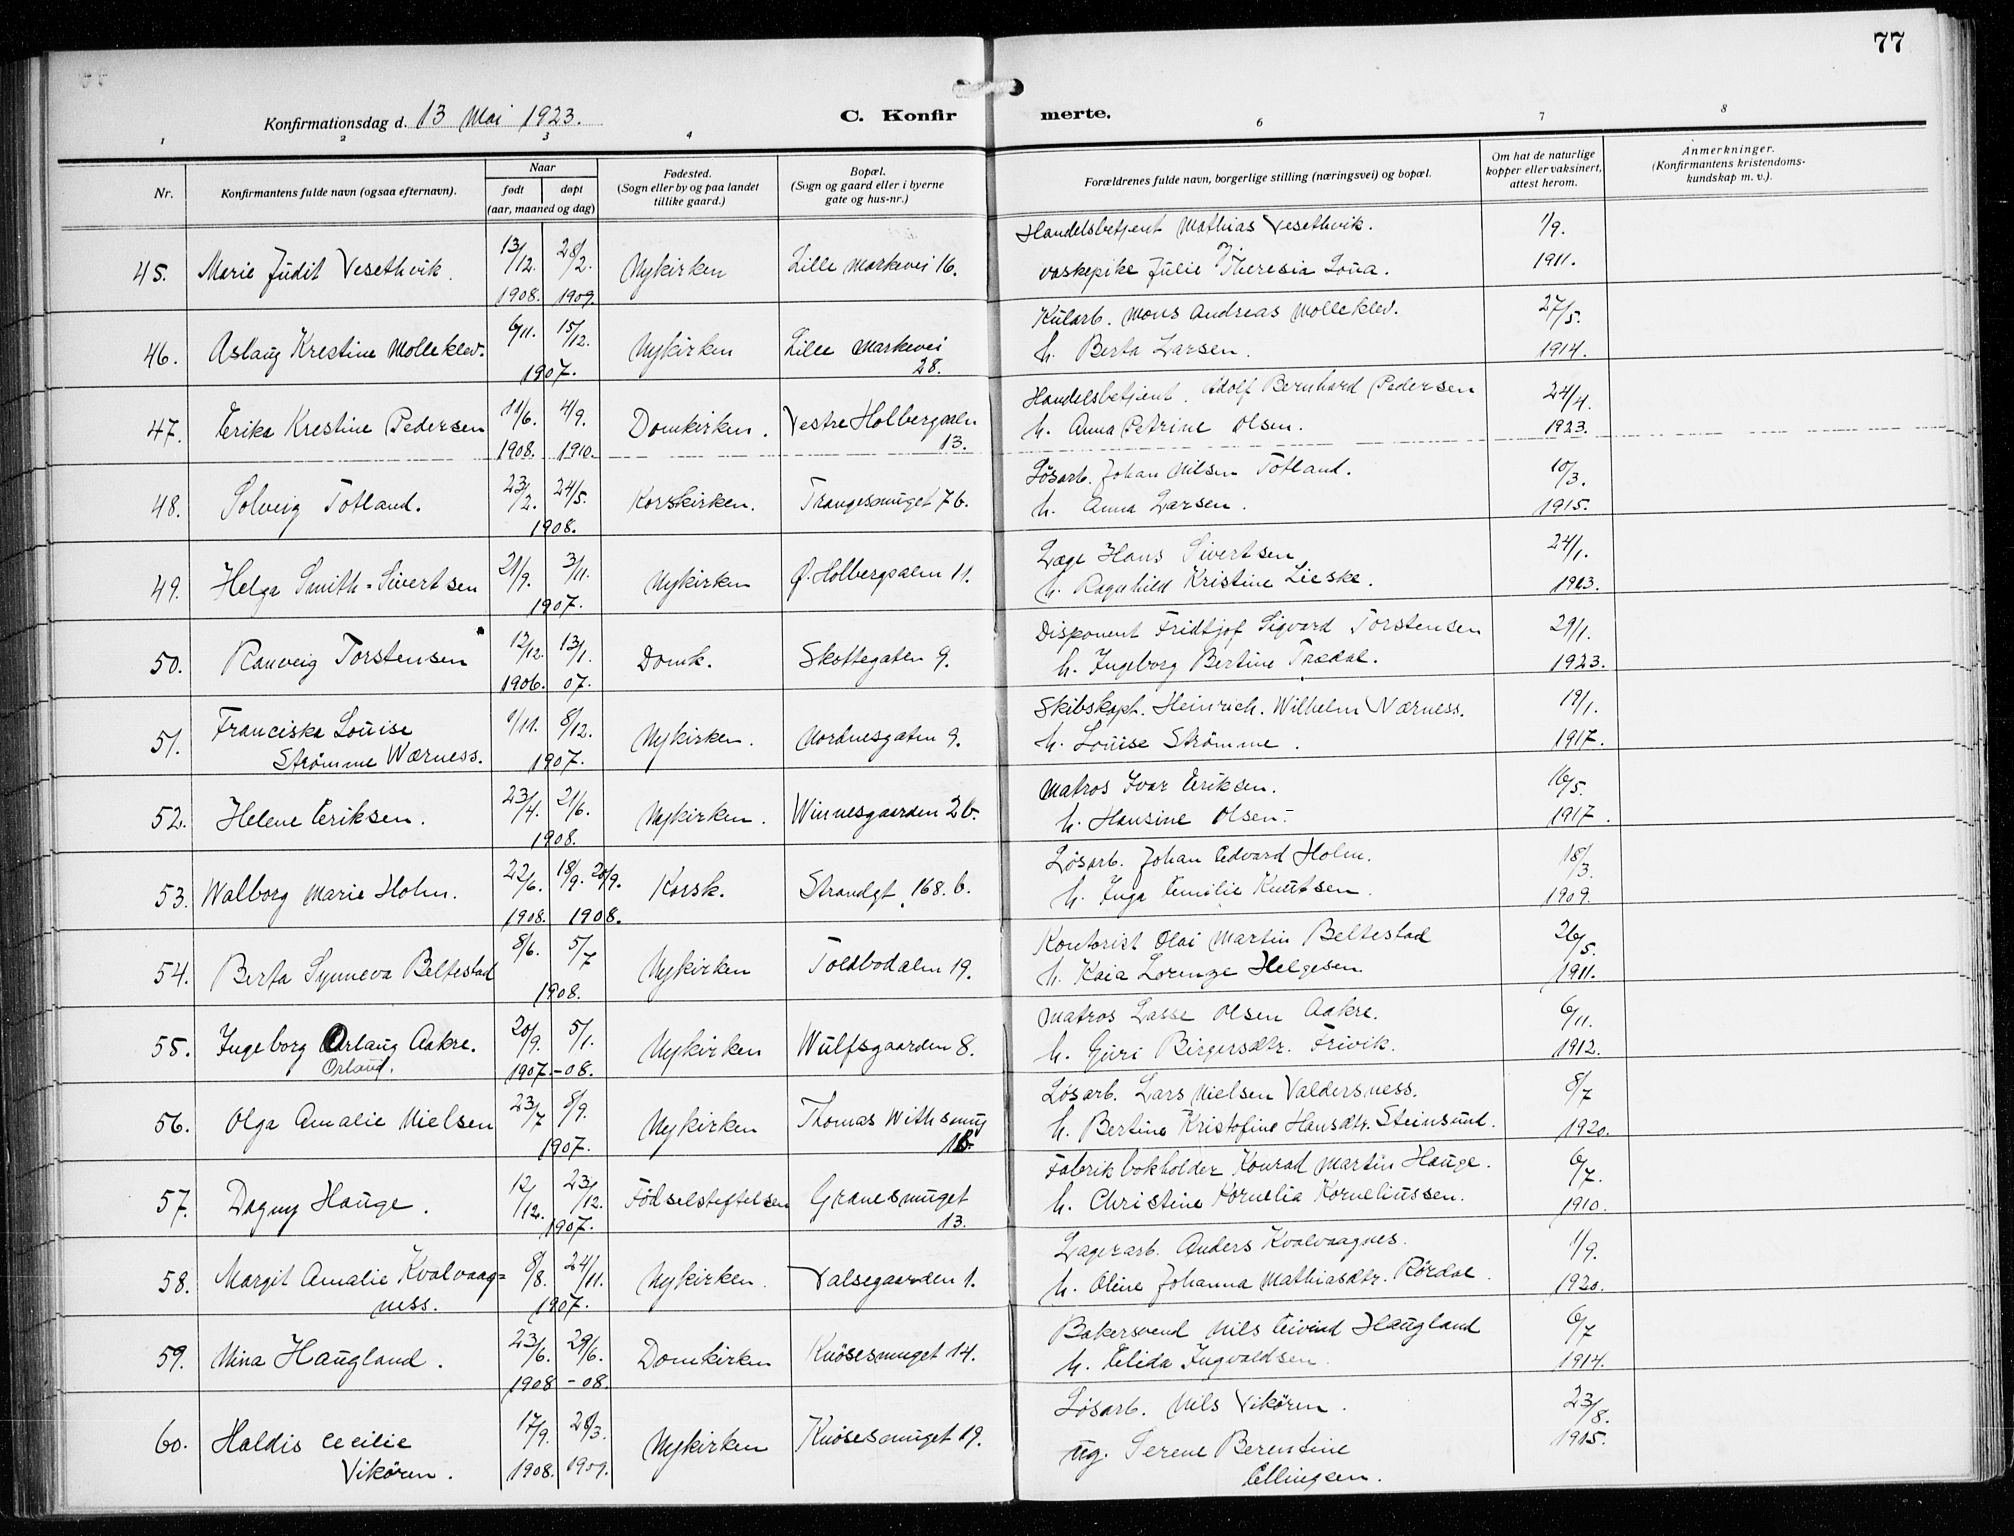 77
Konfirmationsdag d. 13 Mai 1923.
C. Konfirmerte.
1 2 3 4 6 7 8
Nr.
Konfirmantens fulde navn (ogsaa efternavn).
Naar
født døpt
(aar, maaned og dag)
Fødested.
(Sogn eller by og paa landet
tillike gaard.)
Bopæl.
(Sogn og gaard eller i byerne
gate og hus-nr.)
Forældrenes fulde navn, borgerlige stilling (næringsvei) og bopæl.
Om hat de naturlige
kopper eller vaksinert,
attest herom.
Anmerkninger.
(Konfirmantens kristendoms-
kundskap m. v.).
45. Marie Judit Vesethvik. 13/12. 1908. 28/2. 1909. Nykirken Lille Markevei 16. Handelsbetjent Mathias Vesethvik. 1/9.
vaskepike Julie Theresia Loua. 1911.
46. Aslaug Krestine Molleklev. 6/11. 15/12. 1907. Nykirken Lille Markevei 28. Kularb. Mons Andreas Molleklev. 27/5.
h. Berta Larsen. 1914.
47. Erika Krestine Pedersen 11/6. 1908. 4/9. 1910. Domkirken. Vestre Holbergsalm 13. Handelsbetjent. Adolf Bernhard Pedersen 24/4.
h. Anna Petrine Olsen. 1923.
48. Solveig Totland. 23/2. 24/5. 1908. Korskirken. Trangesmuget 7b. Løsarb. Johan Nilsen Totland. 10/3.
h. Anna Larsen. 1915.
49. Helga Smith-Sivertsen 21/9. 3/11. 1907. Nykirken Ø. Holbergsalm 11. Læge Hans Sivertsen 24/1.
h. Ragnhild Kristine Lieske. 1923.
50. Ranveig Torstensen 12/12. 1906. 13/1. 07. Domk. Skottegaten 9. Disponent Fridtjof Sigvard Torstensen 29/1.
h. Ingeborg Bertine Trædal. 1923.
51. Franciska Louise
Strømme Wærness. 1/11. 8/12. 1907. Nykirken. Nordnesgaten 9. Skibskapt. Heinrich. Wilhelm Nærness. 19/1.
h. Louise Strømme. 1917.
52. Helene Eriksen. 23/4. 21/6. 1908. Nykirken. Winnesgaarden 2b. Matros Ivar Eriksen. 16/5.
h. Hansine Olsen. 1917.
53. Walborg Marie Holm. 22/6. 1908. 18/9. 20/9. 1908. Korsk. Strandgt. 168.b. Løsarb. Johan Edvard Holm. 18/3.
h. Inga Emilie Knutsen. 1909.
54. Berta Synneva Beltestad 8/6. 5/7 1908. Nykirken Toldbodalm 19. Kontorist Olai Martin Beltestad 26/5.
h. Kaia Lorenze Helgesen. 1911.
55. Ingeborg Orlaug Aakre.
Orlaug. 20/9. 5/1. 1907.-08. Nykirken Wulfsgaarden 8. Matros Lasse Olsen Aakre. 6/11.
h. Guri Birgersdtr. Frivik. 1912.
56. Olga Amalie Nielsen 23/7 8/9. 1907. Nykirken Thomas Withsmug Løsarb. Lars Nielsen Valdersness. 8/7
h. Bertine Kristofine Hansdtr. Steinsund. 1920.
57. Dagny Hauge. 12/12. 23/12. 1907. Fødselstiftelsen Granesmuget 13. Fabrikbokholder Konrad Martin Hauge. 6/7.
h. Christine Kornelia Korneliussen. 1910.
58. Margit Amalie Kvalvaag-
ness. 8/8. 24/11. 1907. Nykirken. Valsegaarden 1. Lagerarb. Anders Kvalvaagnes. 1/9.
h. Oline Johanna Mathiasdtr. Rørdal. 1920.
59. Mina Haugland. 23/6. 29/6. 1908 -08. Domkirken Knøsesmuget 14. Bakersvend Nils Eivind Haugland 6/7
h. Elida Ingvaldsen. 1914.
60. Haldis Cecilie
Vikøren. 17/9. 1908. 28/3. 1909. Nykirken Knøsesmuget 19. Løsarb. Nils Vikøren. 23/8.
ug. Serene Berentine 1915.
Ellingsen.